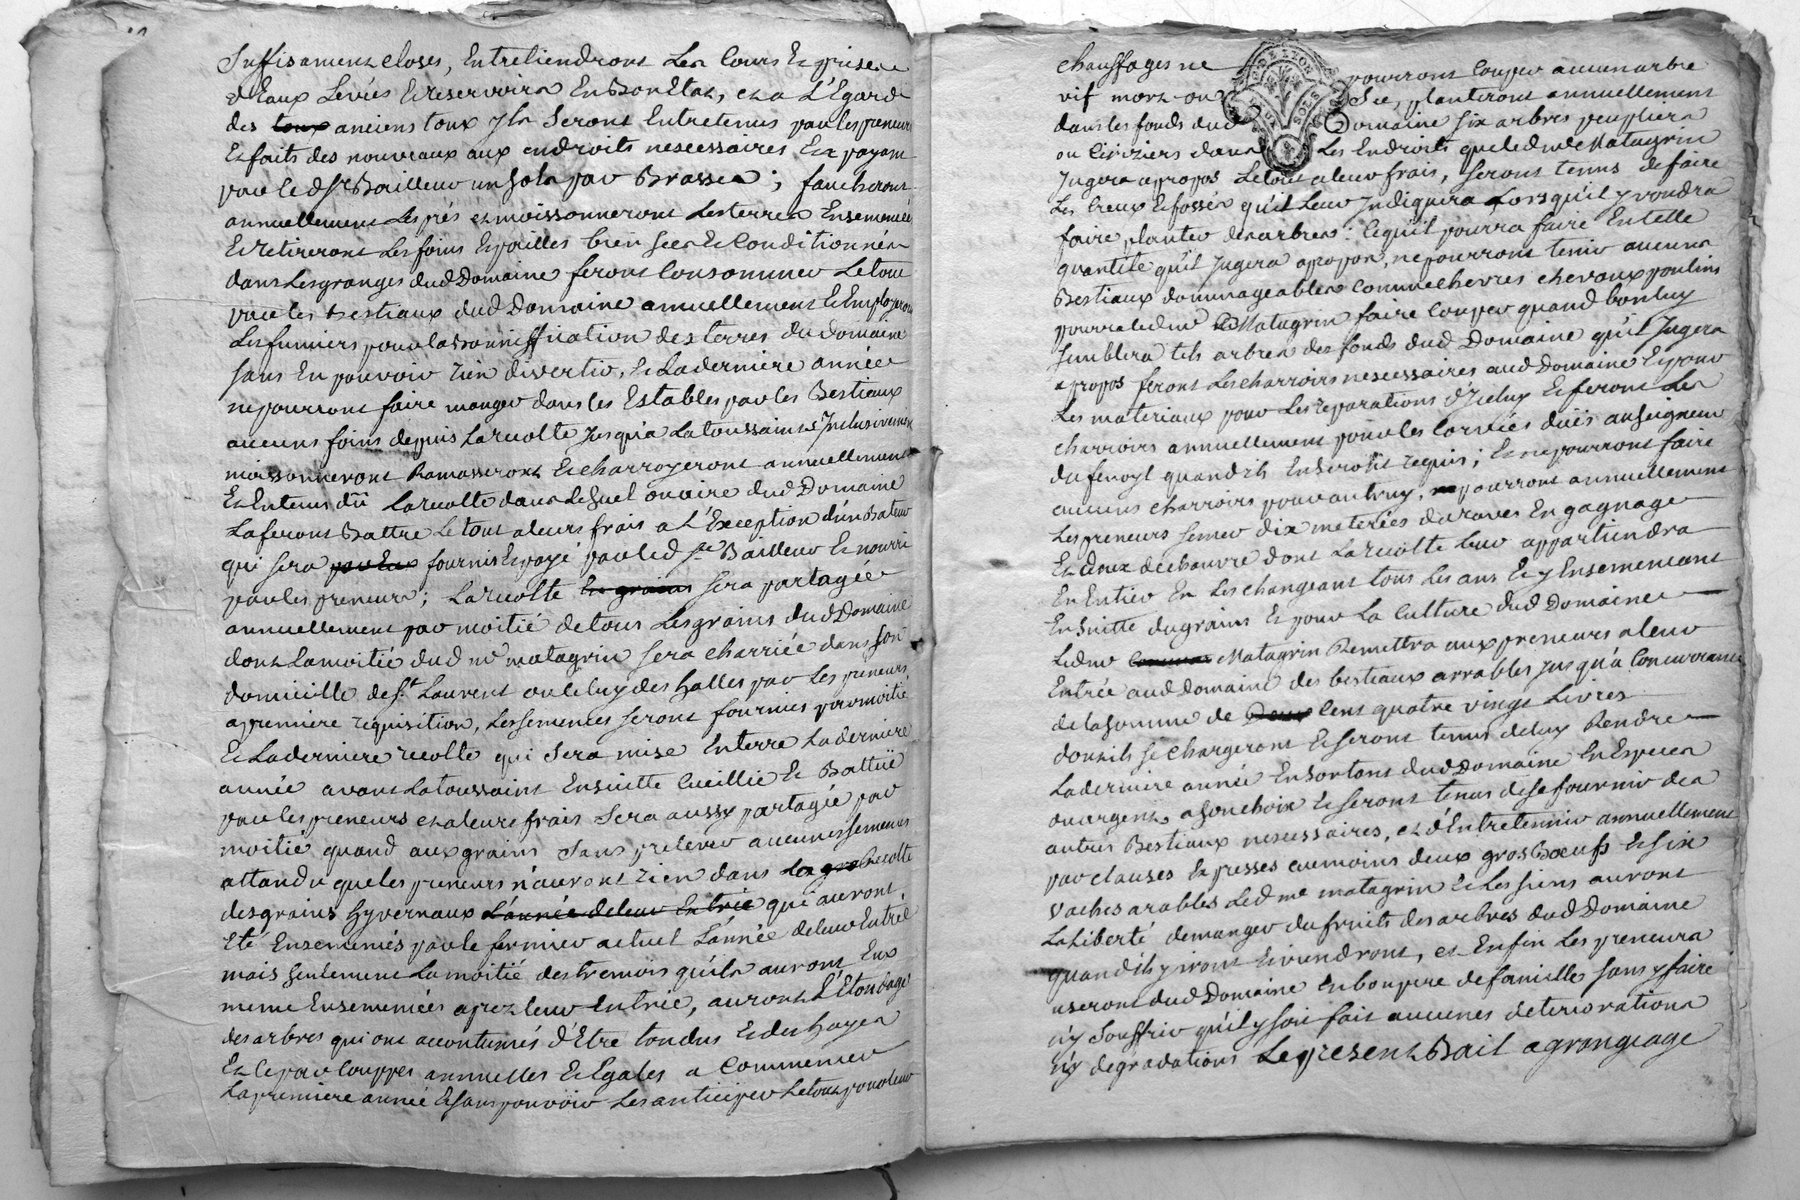 Suffisament closes, Entretiendront Les Cours Et prise
d'Eaux Levées Et reservoirs En Bon Etat, et a L'Egard
des toux anciens toux yls Seront Entretenus par les preneurs
Et faits des nouveaux aux endroits nescessaires En payant
par led Sr Bailleur un Sols par Brasse ; faucheront
annuellement Les prés et moissonneront Les terres Ensemencées
Et retireront Les foins Et pailles bien Secs Et Conditionnés
dans Les granges dud Domaine feront Consommer Le tout
par les Bestiaux dud Domaine annuellement Et Employeront
Les fumiers pour la bonniffication des terres du domaine
Sans En pouvoir rien divertir, Et La derniere année
ne pourront faire manger dans les Estables par les Bestiaux
aucuns foins depuis La recolte Jusqu'a La toussaint Inclusivement
moissonneront Ramasseront Et charroyeront annuellement
Et En tems dû La recolte dans Le Suel ou aire dud Domaine
La feront Battre Le tout a leurs frais a L'Exception d'un Bateur
qui Sera par Eux fournis Et payé par led Sr Bailleur Et nourri
par les preneurs ; La recolte En grains Sera partagée
annuellement par moitié de tous Les grains dud Domaine
dont La moitié dud me matagrin Sera charriée dans Son
domicille de St Laurent ou celuy des Halles par Les preneurs
a premiere requisition, Les Semences Seront fournies par moitié
Et La derniere recolte qui Sera mise En terre La derniere
année avant La toussaint En Suitte Cueillie Et Battüe
par les preneurs et a leurs frais Sera aussy partagée par
moitié quand aux grains Sans prelever aucunes Semences
attandu que les preneurs n'auront rien dans La recolte
des grains hyvernaux L'année de leur Entrée qui auront
Eté Ensemencés par le fermier actuel L'année de leur Entrée
mais Seulement La moitié des tremois qu'ils auront Eux
meme Ensemencées aprez leur Entrée, auront L'Etondage
des arbres qui ont accoutumés d'Etre tondus Et des hayes
Et Ce par Couppes annuelles Et Egales a Commencer
La premiere année Et Sans pouvoir Les anticiper Le tout pour leur
chauffages ne pourront Couper aucun arbre
vif mort ou Sec, planteront annuellement
dans les fonds dud Domaine Six arbres peupliers
ou Ceriziers dans Les Endroits que led me Matagrin
Jugera apropos Le tout a leur frais, Seront tenus de faire
Les Creux Et fossés qu'il Leur Indiquera Lors qu'il y voudra
faire planter des arbres : Ce qu'il pourra faire En telle
quantité qu'il Jugera apropos, ne pourront tenir aucuns
Bestiaux dommageables Comme chevres chevaux poulins
pourra led me Matagrin faire Couper quand bon luy
Semblera tels arbres des fonds dud Domaine qu'il Jugera
apropos feront Les charroirs nescessaires aud Domaine Et pour
Les materiaux pour Les reparations d'Icelux Et feront Les
charroirs annuellement pour les Corvées dües au Seigneur
du fenoyl quand ils En Seront requis ; Et ne pourront faire
aucuns charroirs pour autruy, pourront annuellement
Les preneurs Semer dix meterées de raves En gagnage
Et deux de chanvre dont La recolte leur appartiendra
En Entier En Les changeant tous Les ans Et y Ensemencant
En Suitte du grains Et pour La Culture dud Domaine
Led me Matagrin Remettra aux preneurs a leur
Entrée aud Domaine des bestiaux arrables jusqu'a Concurrance
de la Somme de Deux Cent quatre vingt Livres
dont ils Se chargeront Et Seront tenus de luy Rendre
La derniere année En Sortant dud Domaine En Especes
ou argent, a Son choix Et Seront tenus de Se fournir des
autres Bestiaux nescessaires, et d'Entretenir annuellement
par clauses Expresses au moins deux gros Boeufs Et Six
vaches arables Led me matagrin Et Les Siens auront
La Liberté de manger du fruits des arbres dud Domaine
quand ils y iront Et viendront, et Enfin Les preneurs
useront dud Domaine En bon pere de famille Sans y faire
n'y Souffrir qu'il y Soit fait aucunes deteriorations
n'y degradations Le present Bail a grangeage